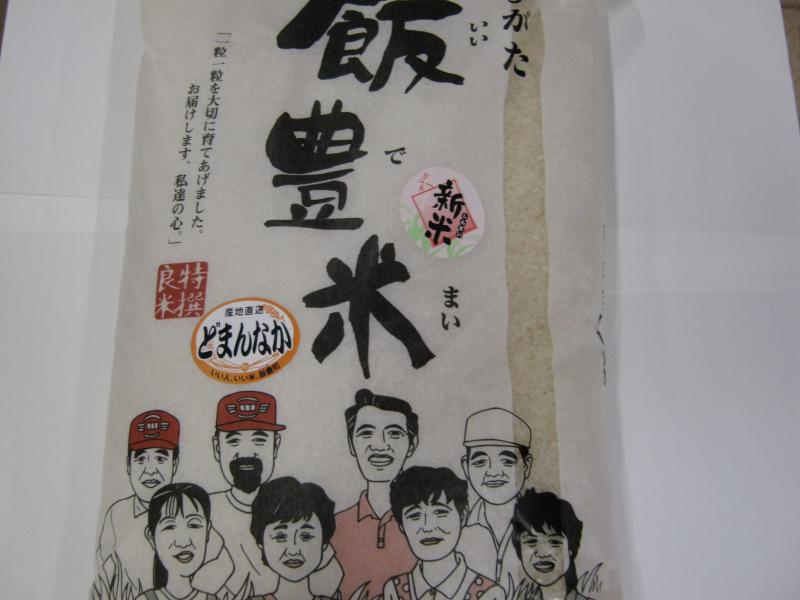 がた
飯豊米
いい
で
まい
「一粒一粒を大切に育てあげました。
お届けします、私達の心。」
新米
特撰
良米
産地直送
どまんなか
いい人、いい米、飯豊町